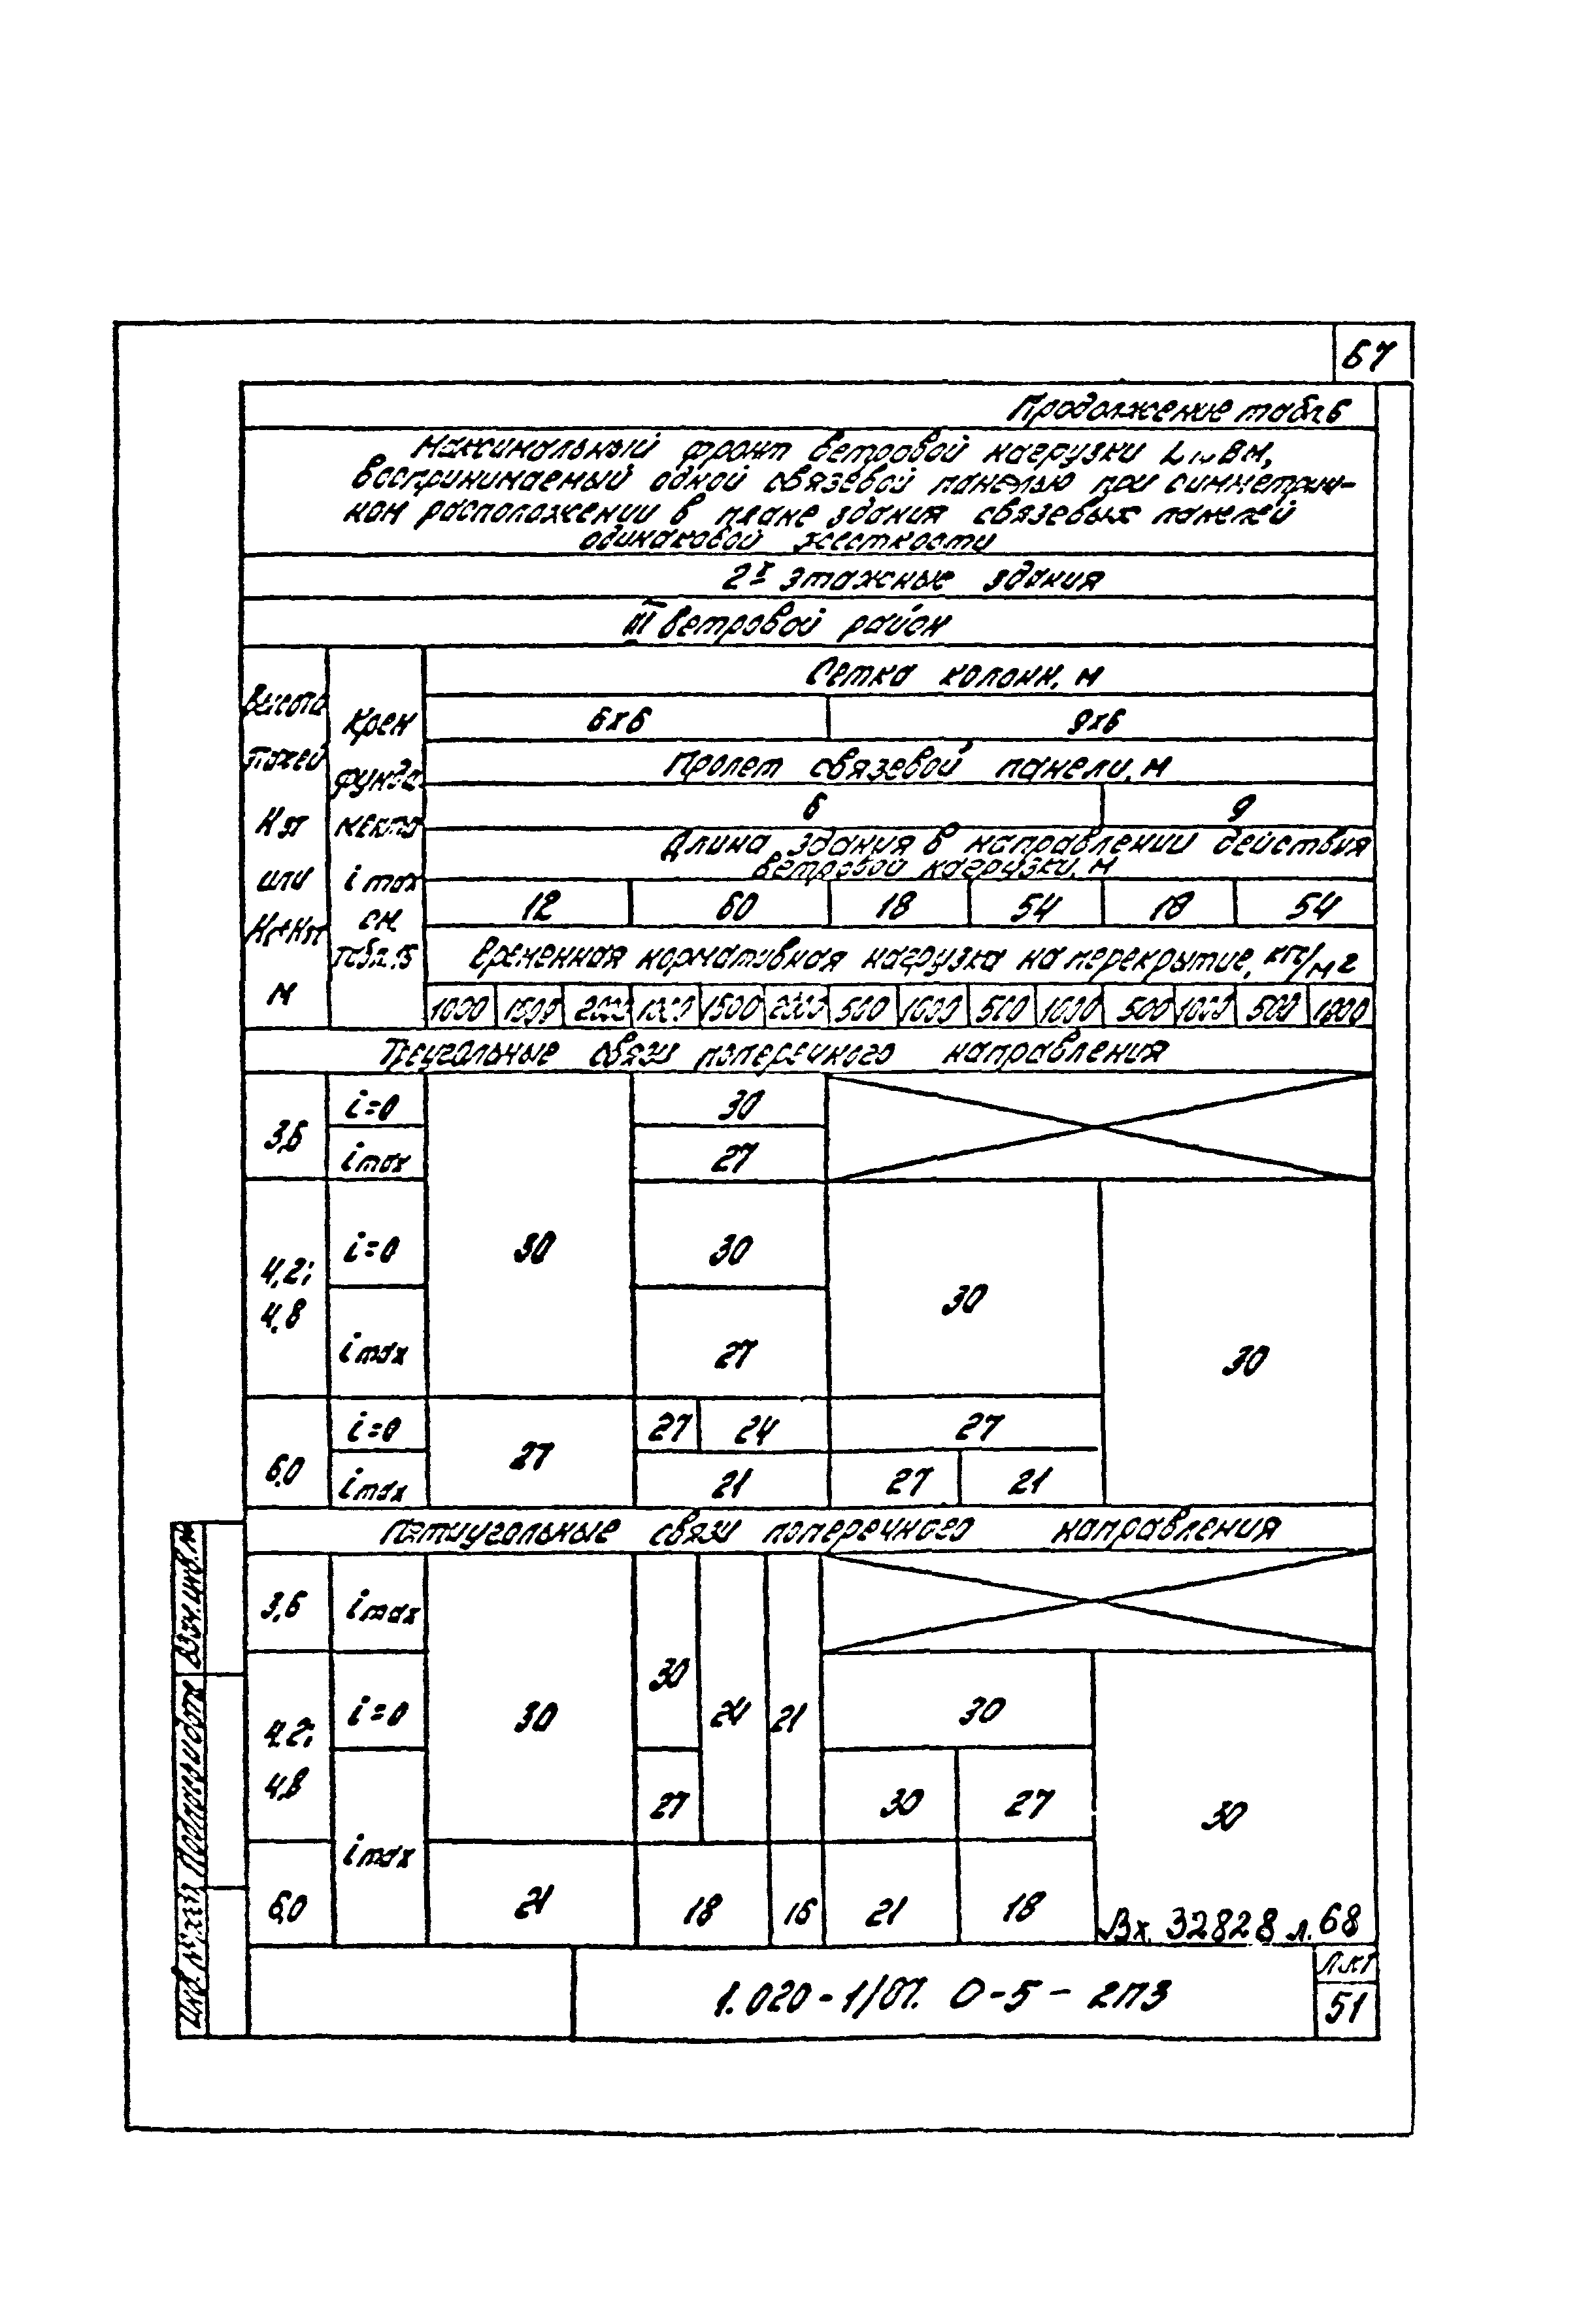 67
Продолжение табл.6
Максимальный фронт ветровой нагрузки L в м,
воспринимаемый одной связевой панелью при симметрич-
ном расположении в плане здания связевых панелей
одинаковой жесткости
2х этажные здания
III ветровой район
Высота
этажей
Hэт
или
м
Крен
фунда-
мента
i max
см.
табл.15
Сетка колонн, м
6х6 9х6
Пролет связевой панели, м
6 9
Длина здания в направлении действия
ветровой нагрузки, м
12 60 18 54 18 54
Временная нормативная нагрузка на перекрытие, кгс/м2
1000 1500 2000 1000 1500 2000 500 1000 500 1000 500 1000 500 1000
Треугольные связи поперечного направления
3,6 i=0 30
i max 27
4,2; 4,8 i=0 30 30 30 30
i max 27
6,0 i=0 27 27 24 27
i max 21 27 21
Пятиугольные связи поперечного направления
3,6 i max
4,2; 4,8 i=0 30 30 24 21 30
i max 27 30 27 30
6,0 21 18 16 21 18
Вх. 32828 л. 68
1.020-1/87. 0-5-2ПЗ
Лист
51
Взам. инв. №
Подпись и дата
Инв. № подл